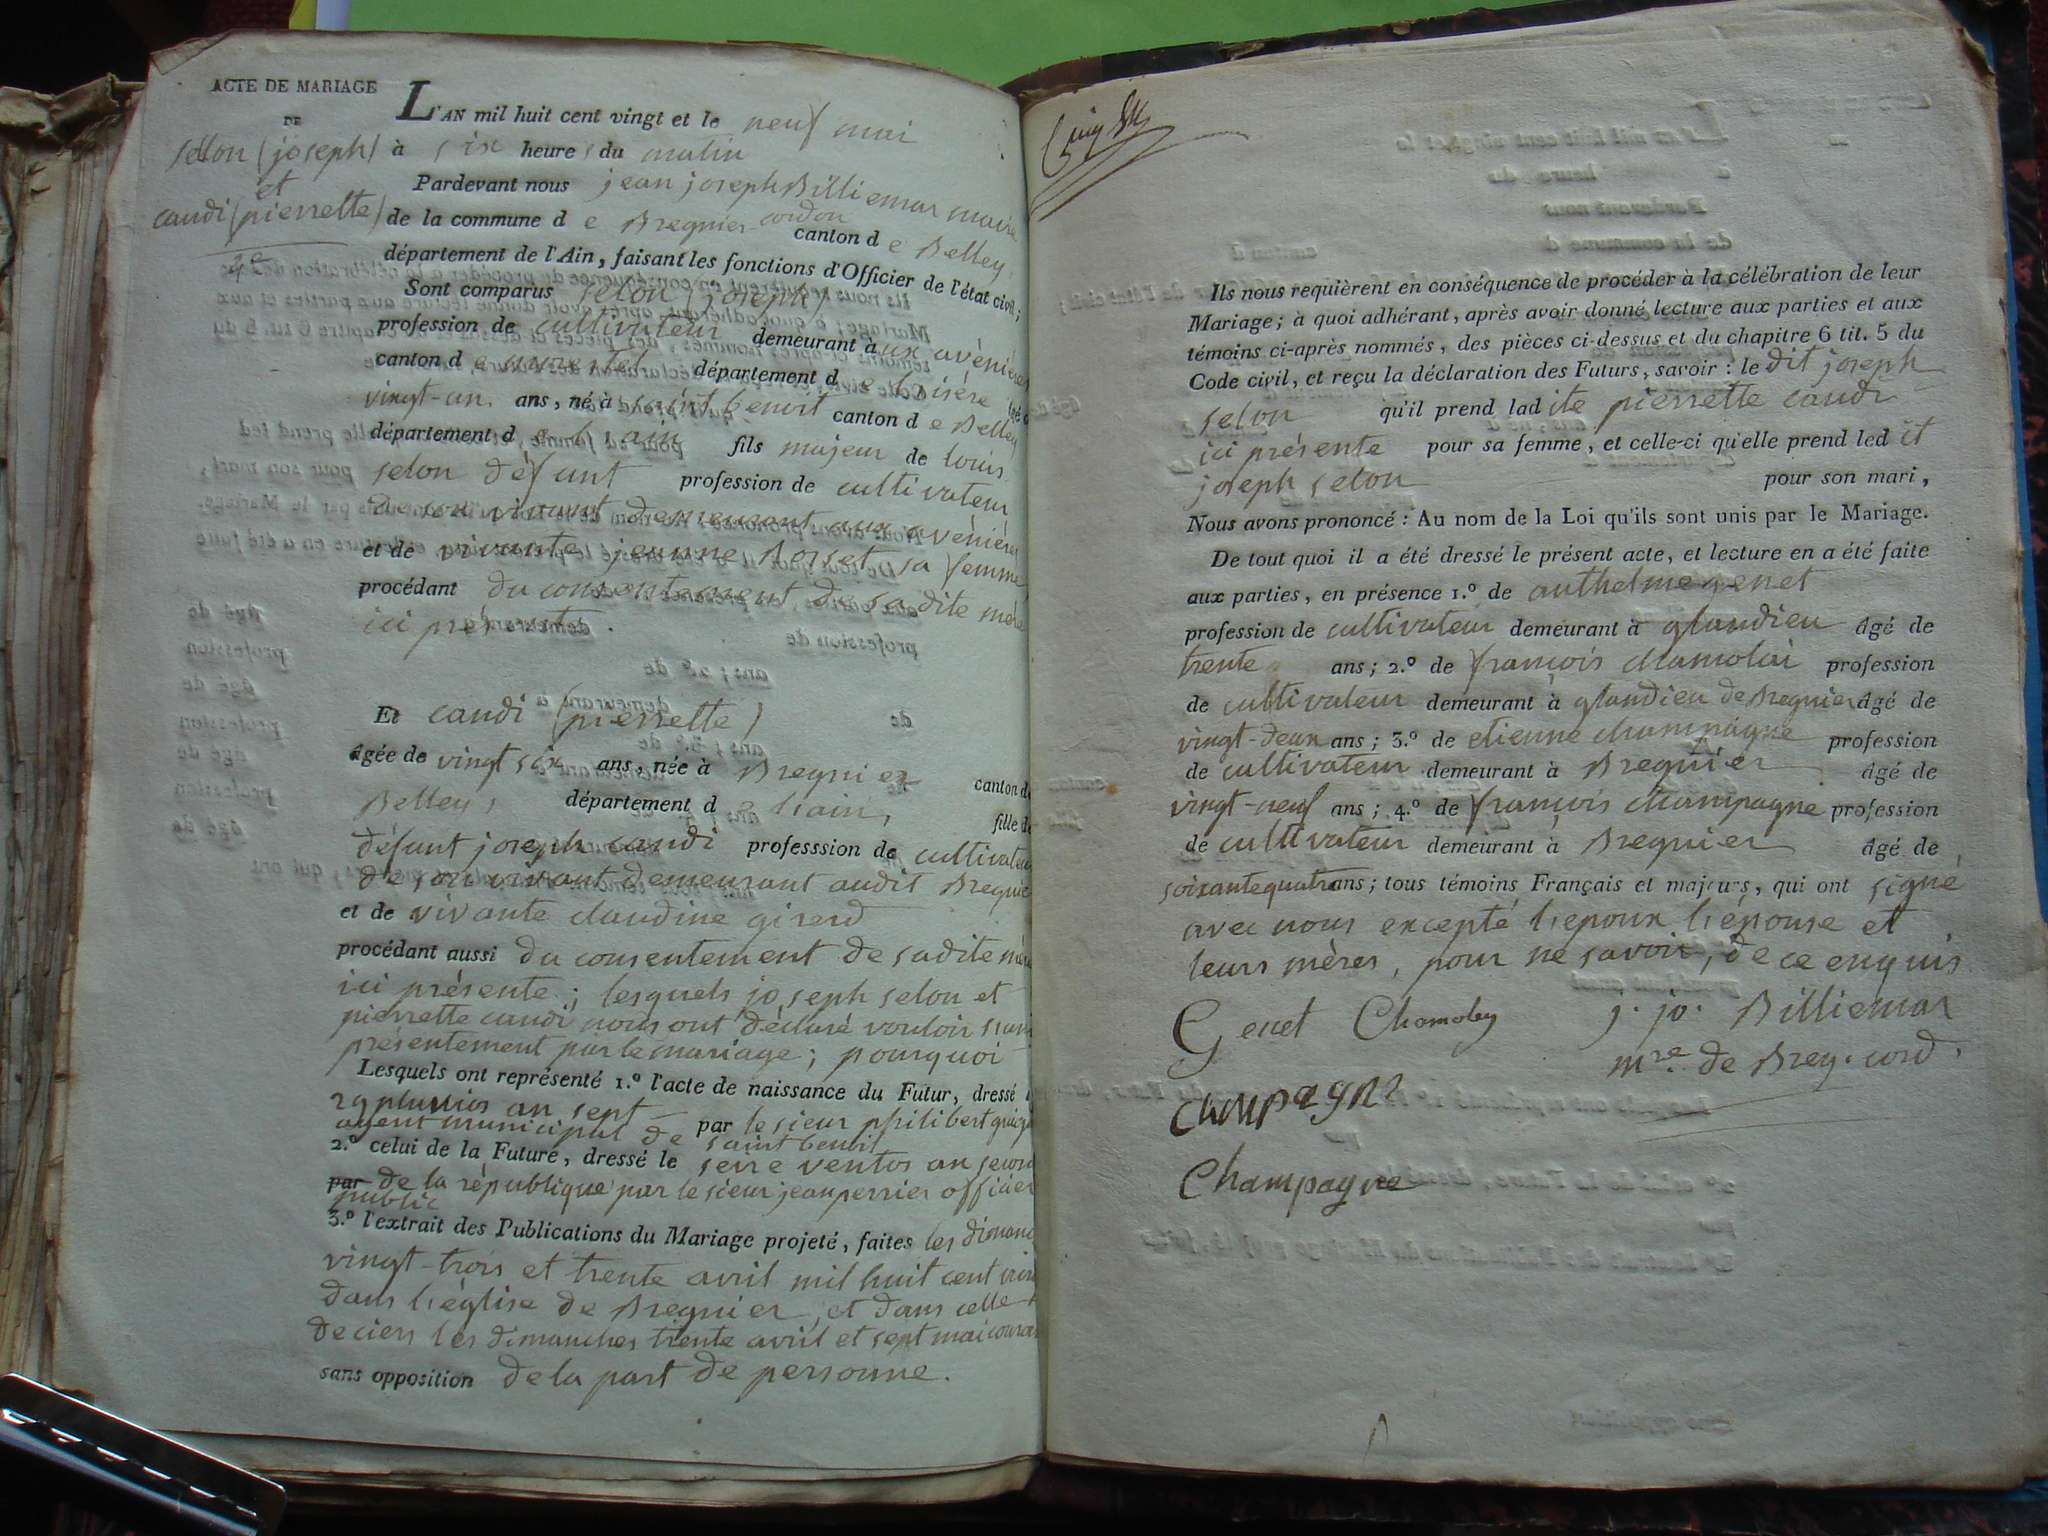 ACTE DE MARIAGE
DE
selon (joseph)
et
candi (pierrette)
L'AN mil huit cent vingt et le neuf mai
à six heures du matin
Pardevant nous jean joseph Billiemar maire
de la commune de Bregnier-cordon canton de Belley,
département de l'Ain, faisant les fonctions d'Officier de l'état civil;
Sont comparus selon (joseph)
profession de cultivateur demeurant aux avénières
canton de morestel département de l'isère
vingt-un ans, né à saint benoit canton de Belley
département de l'ain fils majeur de louis
selon défunt profession de cultivateur
de son vivant demeurant aux avénières
et de vivante jeanne Borset sa femme
procédant du consentement de sadite mère
ici présente.
Et candi (pierrette)
Agée de vingt six ans, née à Bregnier canton de
Belley, département de l'ain, fille de
défunt joseph candi professsion de cultivateu
de son vivant demeurant audit Bregnie
et de vivante claudine girerd
procédant aussi du consentement de sadite mère
ici présente; lesquels joseph selon et
pierrette candi nous ont déclaré vouloir s'uni
présentement par le mariage; pourquoi
Lesquels ont représenté 1.º l'acte de naissance du Futur, dressé
29 pluvios an sept par le sieur philibert
agent municipal de saint benoit
2.º celui de la Future, dressé le seixe ventos an secon
par de la république par le sieur jean perrier officier
public
3.º l'extrait des Publications du Mariage projeté, faites les dimanc
vingt-trois et trente avril mil huit cent vin
dans l'église de Bregnier, et dans celle
de ciers les dimanches trente avril et sept mai couran
sans opposition de la part de personne.
Ils nous requièrent en conséquence de procéder à la célébration de leur
Mariage; à quoi adhérant, après avoir donné lecture aux parties et aux
témoins ci-après nommés, des pièces ci-dessus et du chapitre 6 tit. 5 du
Code civil, et reçu la déclaration des Futurs, savoir: le dit joseph
selon qu'il prend ladite pierrette candi
ici présente pour sa femme, et celle-ci qu'elle prend ledit
joseph selon pour son mari,
Nous avons prononcé: Au nom de la Loi qu'ils sont unis par le Mariage.
De tout quoi il a été dressé le présent acte, et lecture en a été faite
aux parties, en présence 1.º de anthelme genet
profession de cultivateur demeurant à glandieu Agé de
trente ans; 2.º de françois chamolai profession
de cultivateur demeurant à glandieu de Bregnier Agé de
vingt-deux ans; 3.º de etienne champagne profession
de cultivateur demeurant à Bregnier Agé de
vingt-neuf ans; 4.º de françois champagne profession
de cultivateur demeurant à Bregnier Agé de
soixantequatre ans; tous témoins Français et majeurs, qui ont signé
avec nous excepté l'epoux l'épouse et
leurs mères, pour ne savoir, de ce enquis
Genet Chamoley j. jo. Billiemar
mre. de Breg. cord.
champagne
Champagne